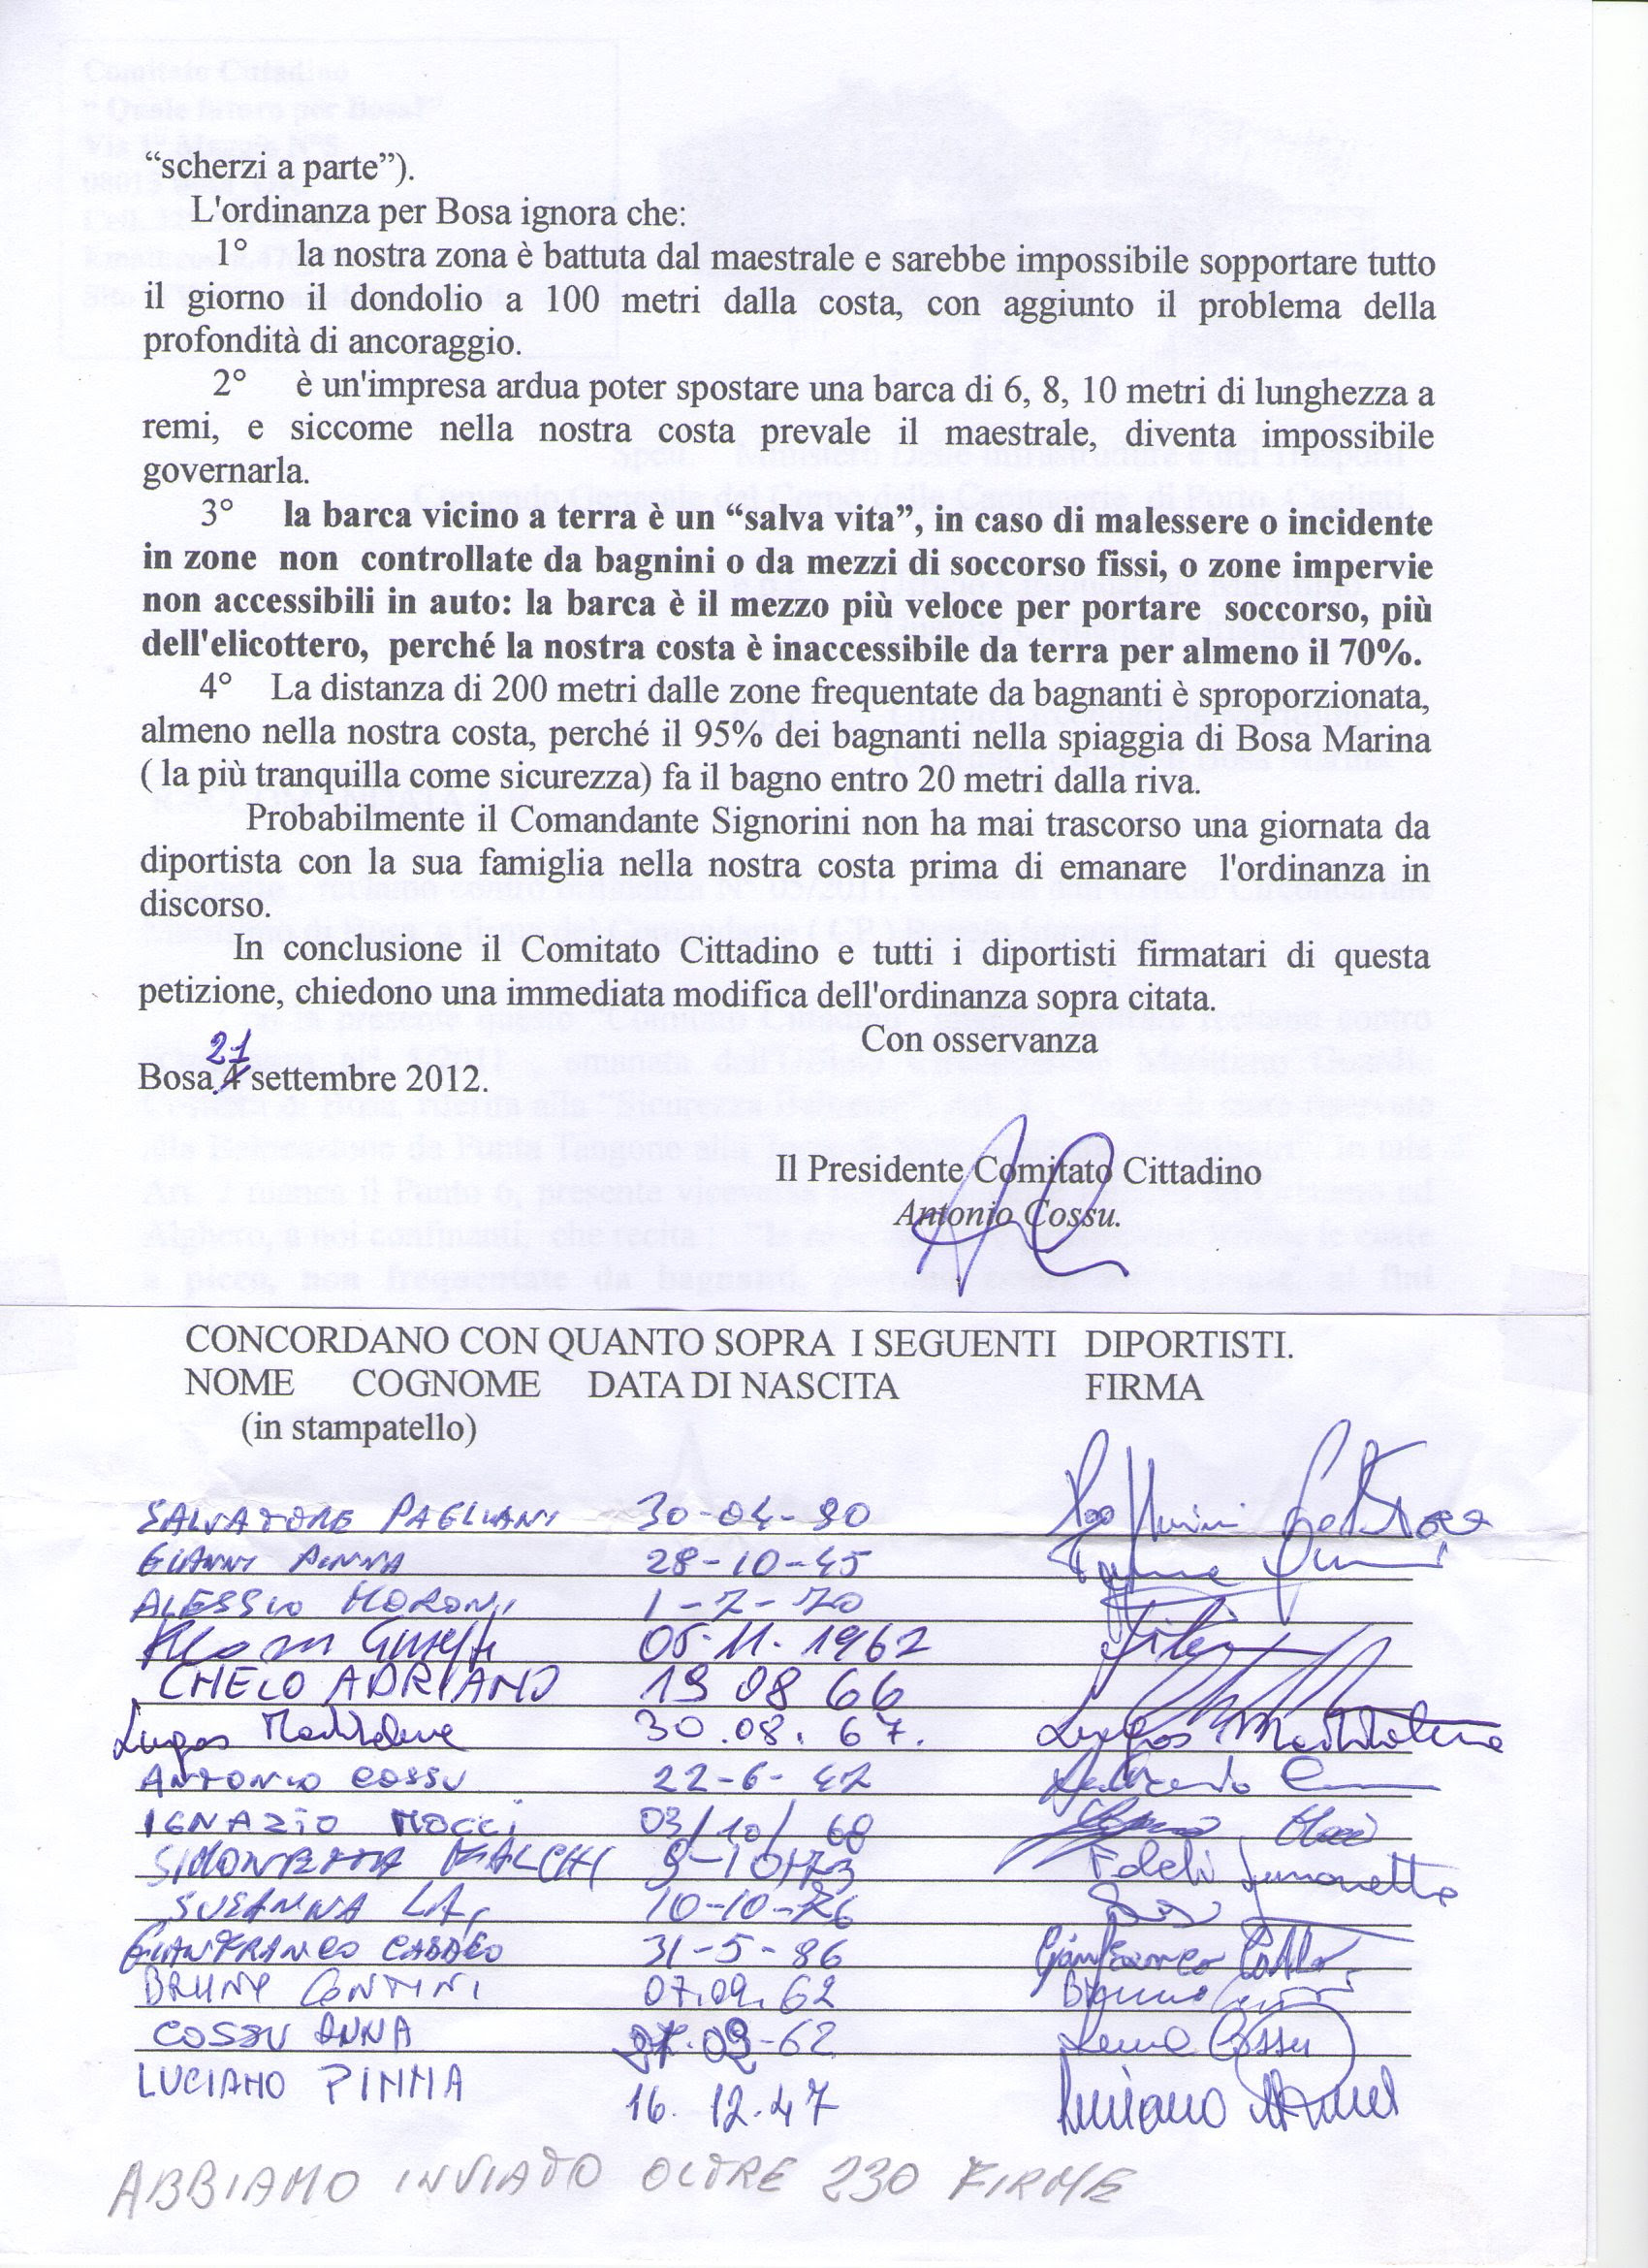 “scherzi a parte”).
L'ordinanza per Bosa ignora che:
1° la nostra zona è battuta dal maestrale e sarebbe impossibile sopportare tutto
il giorno il dondolio a 100 metri dalla costa, con aggiunto il problema della
profondità di ancoraggio.
2° è un'impresa ardua poter spostare una barca di 6, 8, 10 metri di lunghezza a
remi, e siccome nella nostra costa prevale il maestrale, diventa impossibile
governarla.
3° la barca vicino a terra è un “salva vita”, in caso di malessere o incidente
in zone non controllate da bagnini o da mezzi di soccorso fissi, o zone impervie
non accessibili in auto: la barca è il mezzo più veloce per portare soccorso, più
dell'elicottero, perché la nostra costa è inaccessibile da terra per almeno il 70%.
4° La distanza di 200 metri dalle zone frequentate da bagnanti è sproporzionata,
almeno nella nostra costa, perché il 95% dei bagnanti nella spiaggia di Bosa Marina
( la più tranquilla come sicurezza) fa il bagno entro 20 metri dalla riva.
Probabilmente il Comandante Signorini non ha mai trascorso una giornata da
diportista con la sua famiglia nella nostra costa prima di emanare l'ordinanza in
discorso.
In conclusione il Comitato Cittadino e tutti i diportisti firmatari di questa
petizione, chiedono una immediata modifica dell'ordinanza sopra citata.
Con osservanza
21
Bosa 4 settembre 2012.
Il Presidente Comitato Cittadino
Antonio Cossu.
CONCORDANO CON QUANTO SOPRA I SEGUENTI DIPORTISTI.
NOME COGNOME DATA DI NASCITA FIRMA
(in stampatello)
SALVATORE PAGLIANI 30-04-90
GIANNI PINNA 28-10-45
ALESSIO MORONI 1-7-70
05.11.1967
CHELO ADRIANO 19 08 66
Lugas Maddalena 30.08.67. Lugas Maddalena
ANTONIO COSSU 22-6-47
IGNAZIO MOCCI 03/10/68
SIMONETTA 9-10-73 Simonetta
SUSANNA 10-10-76
GIANFRANCO CADDEO 31-5-86 Gianfranco
BRUNO CONTINI 07.09.62 Bruno
COSSU ANNA 09-62 Cossu
LUCIANO PINNA 16.12.47 Luciano
ABBIAMO INVIATO OLTRE 230 FIRME